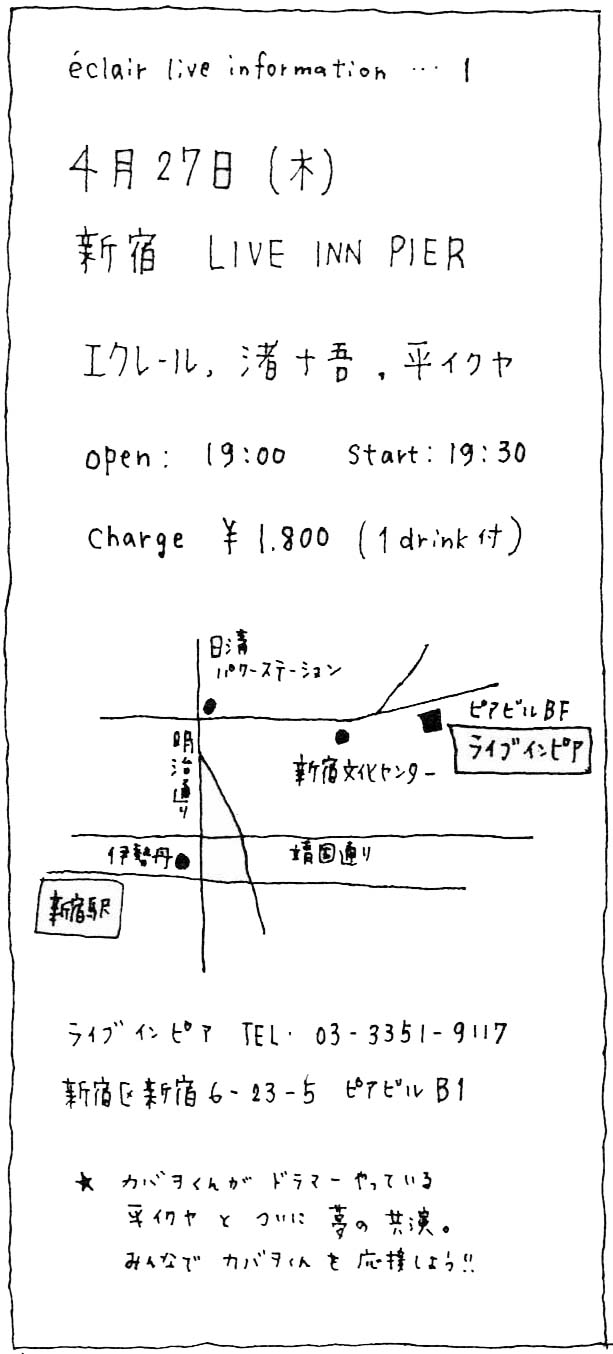 éclair live information … 1
4月27日(木)
新宿 LIVE INN PIER
エクレール, 渚十吾, 平イクヤ
open: 19:00 Start: 19:30
Charge ¥1.800 (1drink付)
日清
パワーステーション
ピアビルBF
ライブインピア
新宿文化センター
明治通り
伊勢丹
靖国通り
新宿駅
ライブインピア TEL. 03-3351-9117
新宿区新宿6-23-5 ピアビルB1
★ カバヲくんが ドラマーやっている
平イクヤ と ついに 夢の 共演。
みんなで カバヲくん を 応援しよう!!